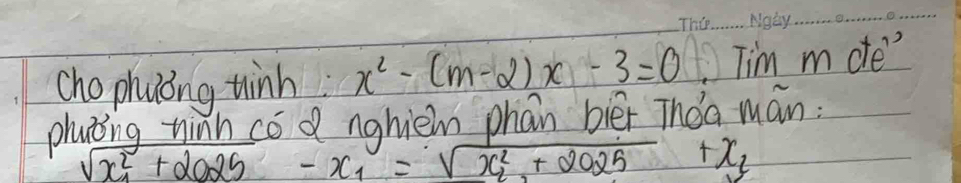 Thứ....... Ngày.......................
Cho phương trình : x² - (m-2)x - 3 = 0. Tìm m để
phương trình có 2 nghiệm phân biệt Thỏa mãn:
√(x₁² + 2025) - x₁ = √(x₂² + 2025) + x₂